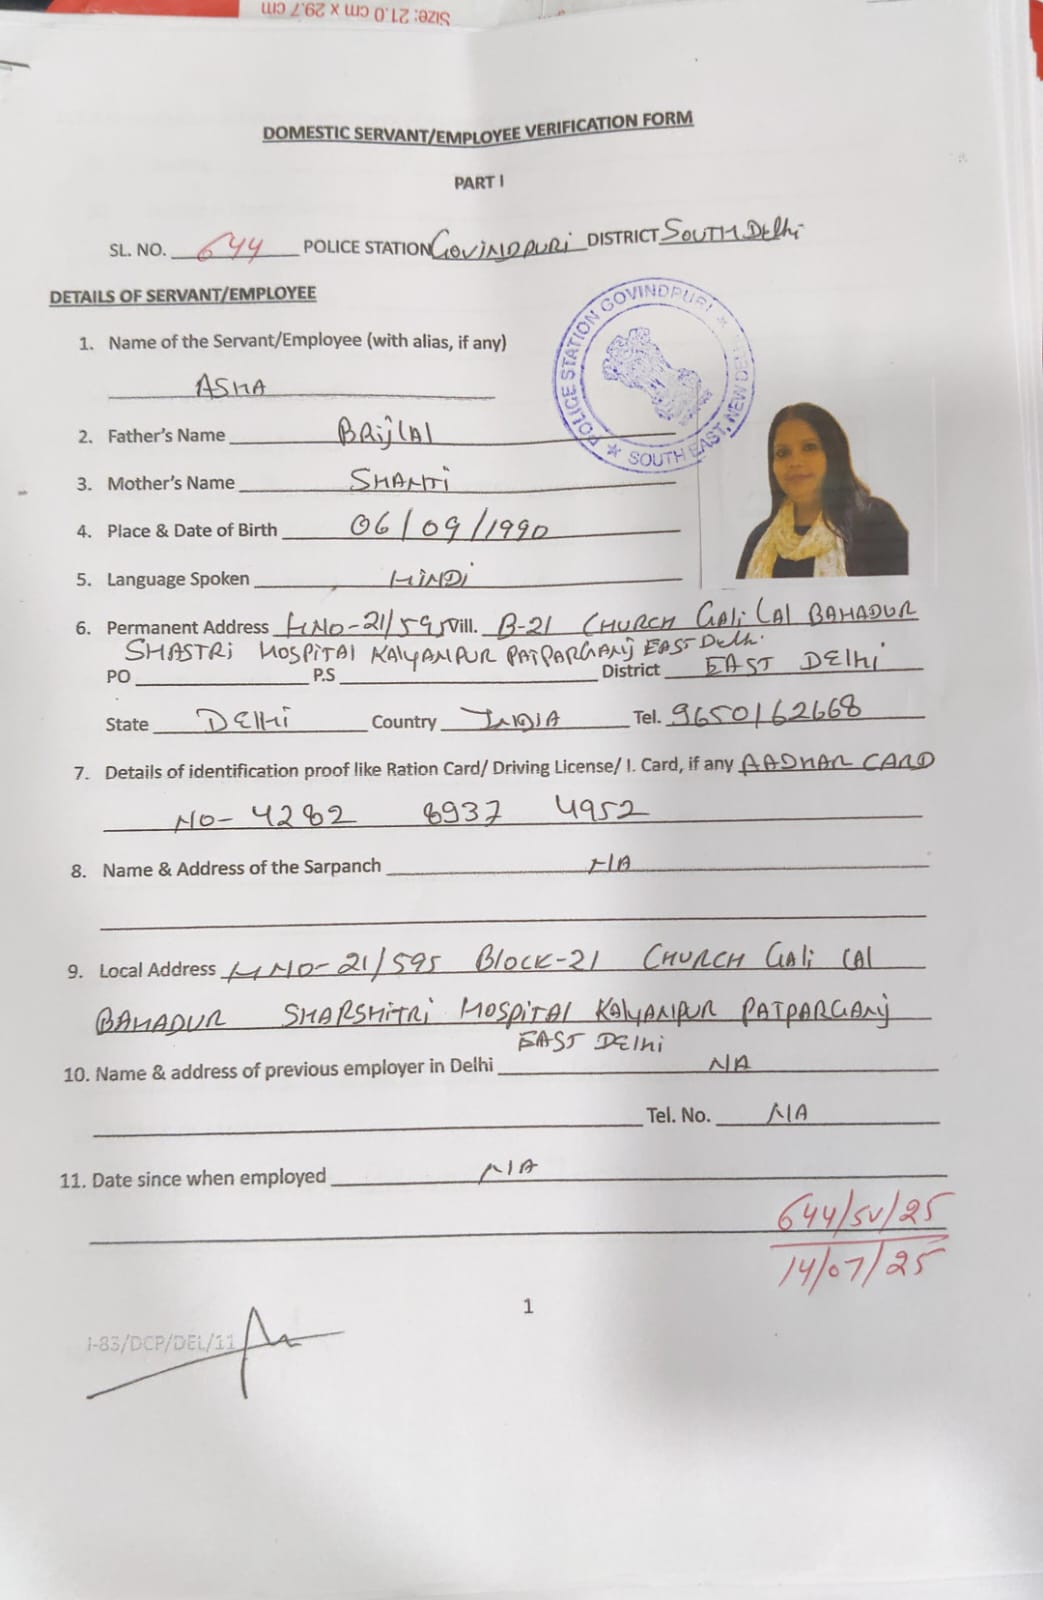 Size: 21.0 cm x 29.7 cm
DOMESTIC SERVANT/EMPLOYEE VERIFICATION FORM
PART I
SL. NO. 644 POLICE STATION GOVINDPURI DISTRICT SOUTH DElhi
DETAILS OF SERVANT/EMPLOYEE
POLICE STATION GOVINDPURI * SOUTH EAST, NEW DELHI *
1. Name of the Servant/Employee (with alias, if any)
ASHA
2. Father's Name BRijlAl
3. Mother's Name SHANTi
4. Place & Date of Birth 06/09/1990
5. Language Spoken HiNDi
6. Permanent Address HNO-21/595 Vill. B-21 CHURCH GAli lAl BAHADUR
SHASTRi HOSPiTAl KAlyANPUR PATPARGANj EAST Delhi.
PO P.S District EAST DElhi
State DElhi Country INDIA Tel. 9650162668
7. Details of identification proof like Ration Card/ Driving License/ I. Card, if any AADHAR CARD
NO- 4282 8937 4952
8. Name & Address of the Sarpanch N/A
9. Local Address HNO-21/595 Block-21 CHURCH GAli lAl
BAHADUR SHARSHiTRi HOSPiTAl KAlyANPUR PATPARGANj
EAST DElhi
10. Name & address of previous employer in Delhi N/A
Tel. No. N/A
11. Date since when employed N/A
644/SV/25
14/07/25
1
I-83/DCP/DEL/11